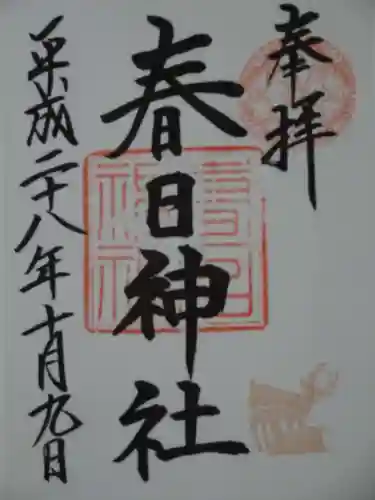 奉拝
春日神社
平成二十八年十月九日
春日
神社